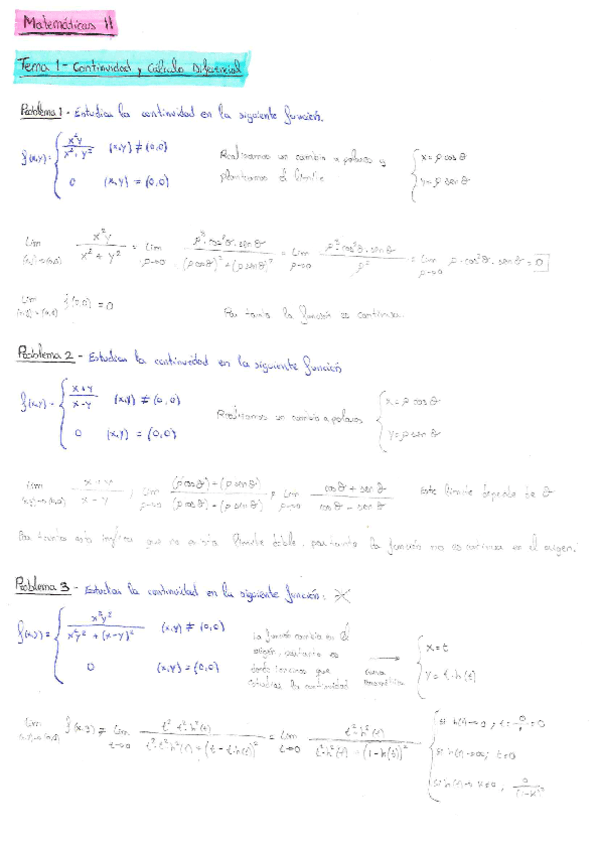 Matemáticas II
Tema 1 - Continuidad y Cálculo Diferencial
Problema 1 - Estudiar la continuidad en la siguiente función.
f(x,y) = { x²y / (x² + y²) (x,y) ≠ (0,0)
0 (x,y) = (0,0)
Realizamos un cambio a polares y
planteamos el límite
{ x = ρ cos θ
y = ρ sen θ
Lim (x,y)→(0,0) x²y / (x² + y²) = Lim ρ→0 ρ³·cos²θ·sen θ / ((ρ cos θ)² + (ρ sen θ)²) = Lim ρ→0 ρ³·cos²θ·sen θ / ρ² = Lim ρ→0 ρ·cos²θ·sen θ = 0
Lim (x,y)→(0,0) f(0,0) = 0
Por tanto la función es continua.
Problema 2 - Estudiar la continuidad en la siguiente función
f(x,y) = { x+y / x-y (x,y) ≠ (0,0)
0 (x,y) = (0,0)
Realizamos un cambio a polares
{ x = ρ cos θ
y = ρ sen θ
Lim x+y / x-y Lim ρ→0 (ρ cos θ) + (ρ sen θ) / (ρ cos θ) - (ρ sen θ) Lim ρ→0 cos θ + sen θ / cos θ - sen θ Este límite depende de θ
Por tanto esto implica que no límite doble, por tanto la función no es continua en el origen.
Problema 3 - Estudiar la continuidad en la siguiente función:
f(x,y) = { x²y² / (x²y² + (x-y)²) (x,y) ≠ (0,0)
0 (x,y) = (0,0)
La función cambia en el
origen, es
donde tenemos que
estudiar la continuidad
→
{ x = t
y = t·h(t)
Lim (x,y)→(0,0) f(x,y) = Lim t→0 t²·t²·h²(t) / (t²·t²h²(t) + (t - t·h(t))²) = Lim t→0 t²·h²(t) / (t²·h²(t) + (1-h(t))²)